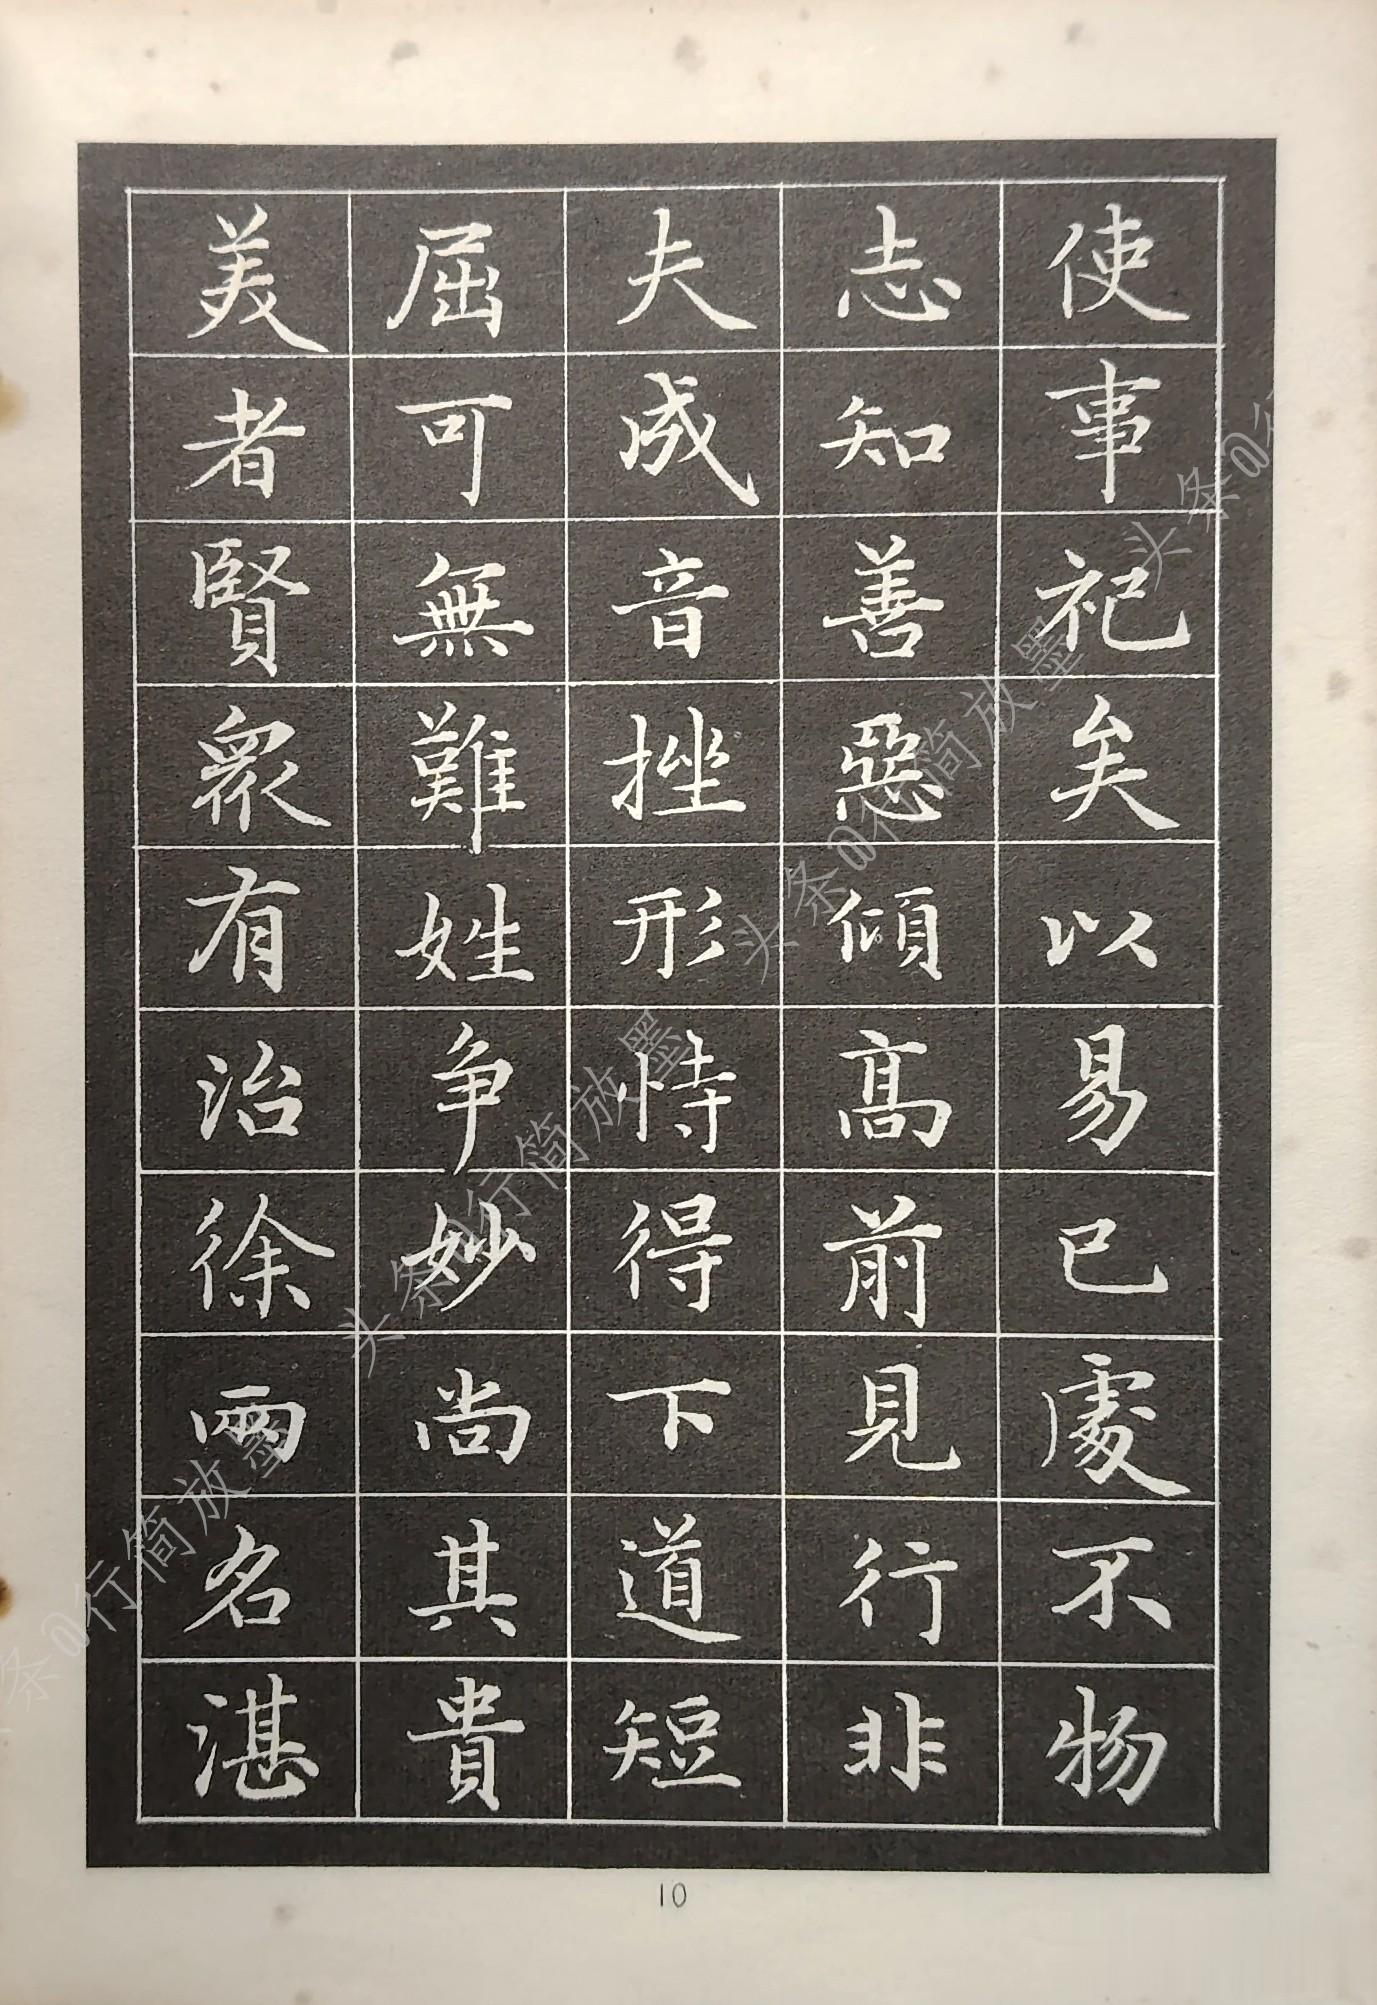 使事祀矣以易已處不物
志知善惡傾高前見行非
夫成音挫形恃得下道短
屈可無難姓争妙尚其貴
美者賢眾有治徐兩名湛
10
头条@行简放墨
头条@行简放墨
头条@行简放墨